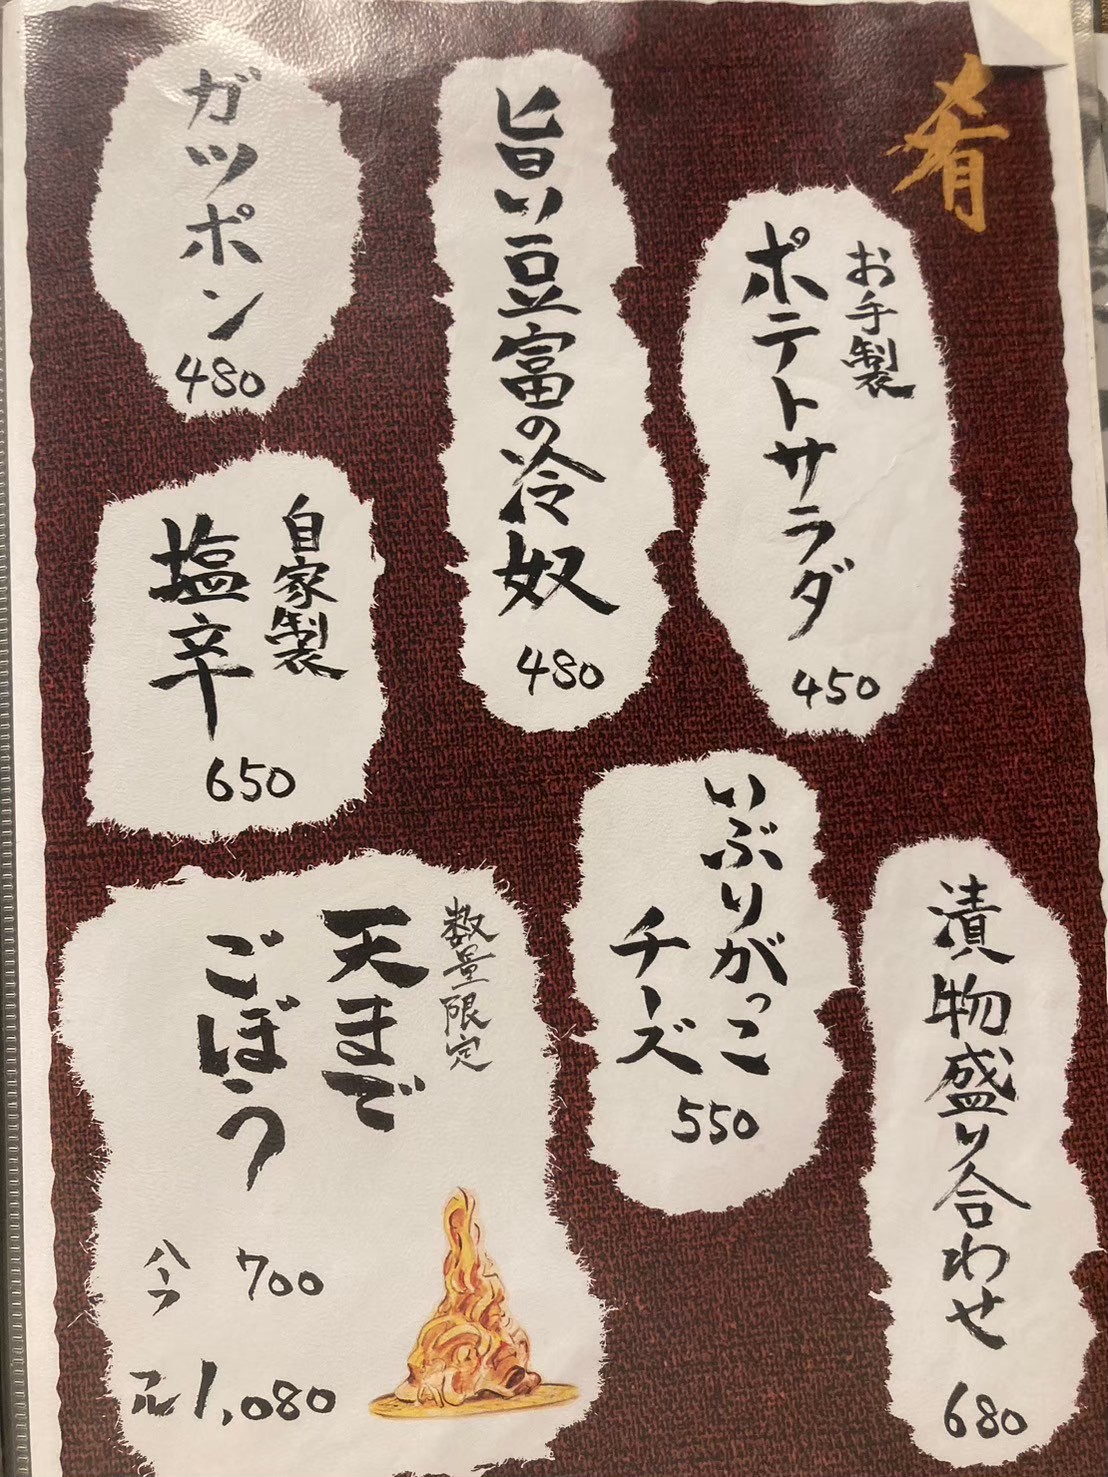 肴
お手製
ポテトサラダ
450
旨い豆富の冷奴
480
ガツポン
480
自家製
塩辛
650
漬物盛り合わせ
680
いぶりがっこ
チーズ
550
数量限定
天まで
ごぼう
ハーフ 700
フル 1,080